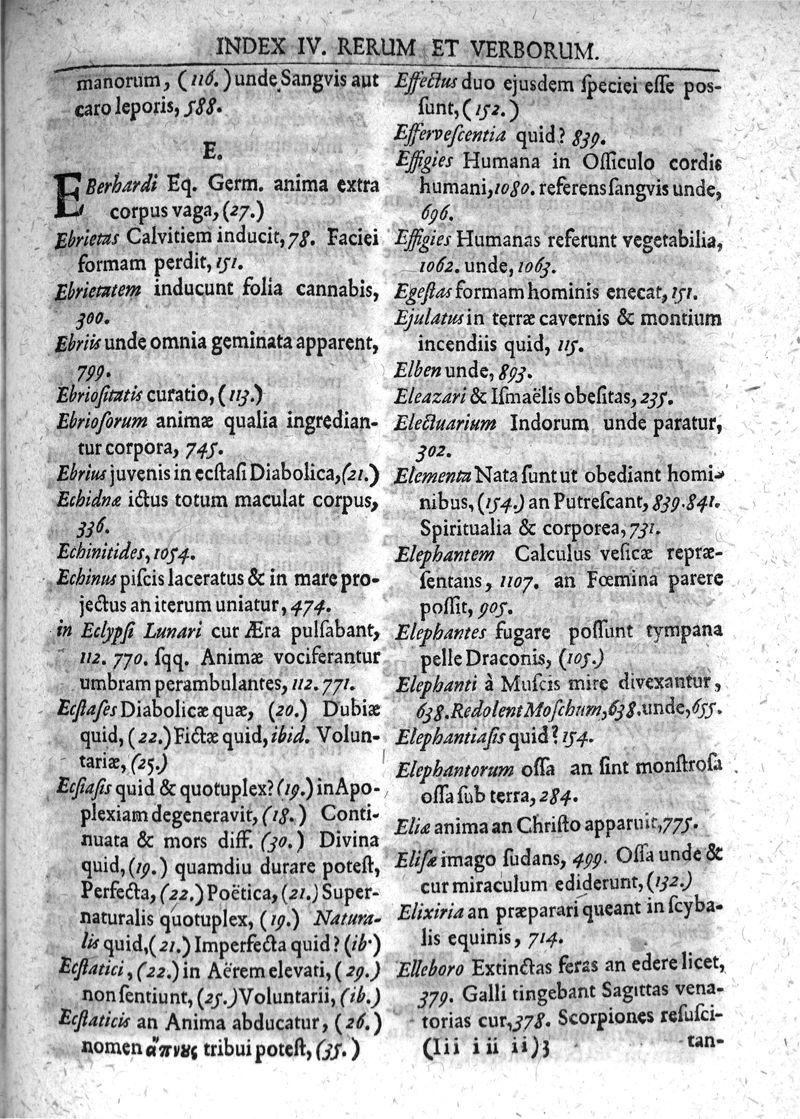 INDEX IV. RERUM ET VERBORUM.
manorum, (116.) unde Sangvis aut
caro leporis, 588.
E.
EBerhardi Eq. Germ. anima extra
corpus vaga, (27.)
Ebrietas Calvitiem inducit, 78. Faciei
formam perdit, 151.
Ebrietatem inducunt folia cannabis,
300.
Ebriis unde omnia geminata apparent,
799.
Ebriositatis curatio, (113.)
Ebriosorum animæ qualia ingredian-
tur corpora, 745.
Ebrius juvenis in ecstasi Diabolica, (21.)
Echidnæ ictus totum maculat corpus,
336.
Echinitides, 1054.
Echinus piscis laceratus & in mare pro-
jectus an iterum uniatur, 474.
in Eclypsi Lunari cur Æra pulsabant,
112. 770. sqq. Animæ vociferantur
umbram perambulantes, 112. 771.
Ecstases Diabolicæ quæ, (20.) Dubiæ
quid, (22.) Fictæ quid, ibid. Volun-
tariæ, (25.)
Ecstasis quid & quotuplex? (19.) in Apo-
plexiam degeneravit, (18.) Conti-
nuata & mors diff. (30.) Divina
quid, (19.) quamdiu durare potest,
Perfecta, (22.) Poëtica, (21.) Super-
naturalis quotuplex, (19.) Natura-
lis quid, (21.) Imperfecta quid? (ib.)
Ecstatici, (22.) in Aërem elevati, (29.)
non sentiunt, (25.) Voluntarii, (ib.)
Ecstaticis an Anima abducatur, (26.)
nomen ἄπνους tribui potest, (35.)
Effectus duo ejusdem speciei esse pos-
sunt, (152.)
Effervescentia quid? 839.
Effigies Humana in Ossiculo cordis
humani, 1080. referens sangvis unde,
696.
Effigies Humanas referunt vegetabilia,
1062. unde, 1063.
Egestas formam hominis enecat, 151.
Ejulatus in terræ cavernis & montium
incendiis quid, 115.
Elben unde, 893.
Eleazari & Ismaëlis obesitas, 235.
Electuarium Indorum unde paratur,
302.
Elementa Nata sunt ut obediant homi-
nibus, (154.) an Putrescant, 839. 841.
Spiritualia & corporea, 731.
Elephantem Calculus vesicæ repræ-
sentans, 1107. an Fœmina parere
possit, 905.
Elephantes fugare possunt tympana
pelle Draconis, (105.)
Elephanti à Muscis mire divexantur,
638. Redolent Moschum, 638. unde, 655.
Elephantiasis quid? 154.
Elephantorum ossa an sint monstrosa
ossa sub terra, 284.
Eliæ anima an Christo apparuit, 775.
Elisæ imago sudans, 499. Ossa unde &
cur miraculum ediderunt, (132.)
Elixiria an præparari queant in scyba-
lis equinis, 714.
Elleboro Extinctas feras an edere licet,
379. Galli tingebant Sagittas vena-
torias cur, 378. Scorpiones resusci-
(Iii i ii ii) 3
tan-